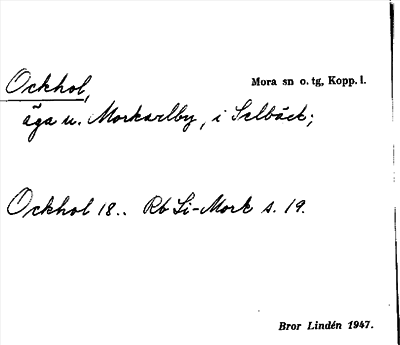 Ockhol, Mora sn o. tg, Kopp. l.
äga u. Morkarlby, i Selbäck;
Ockhol 18.. Rb Li-Mork s. 19.
Bror Lindén 1947.